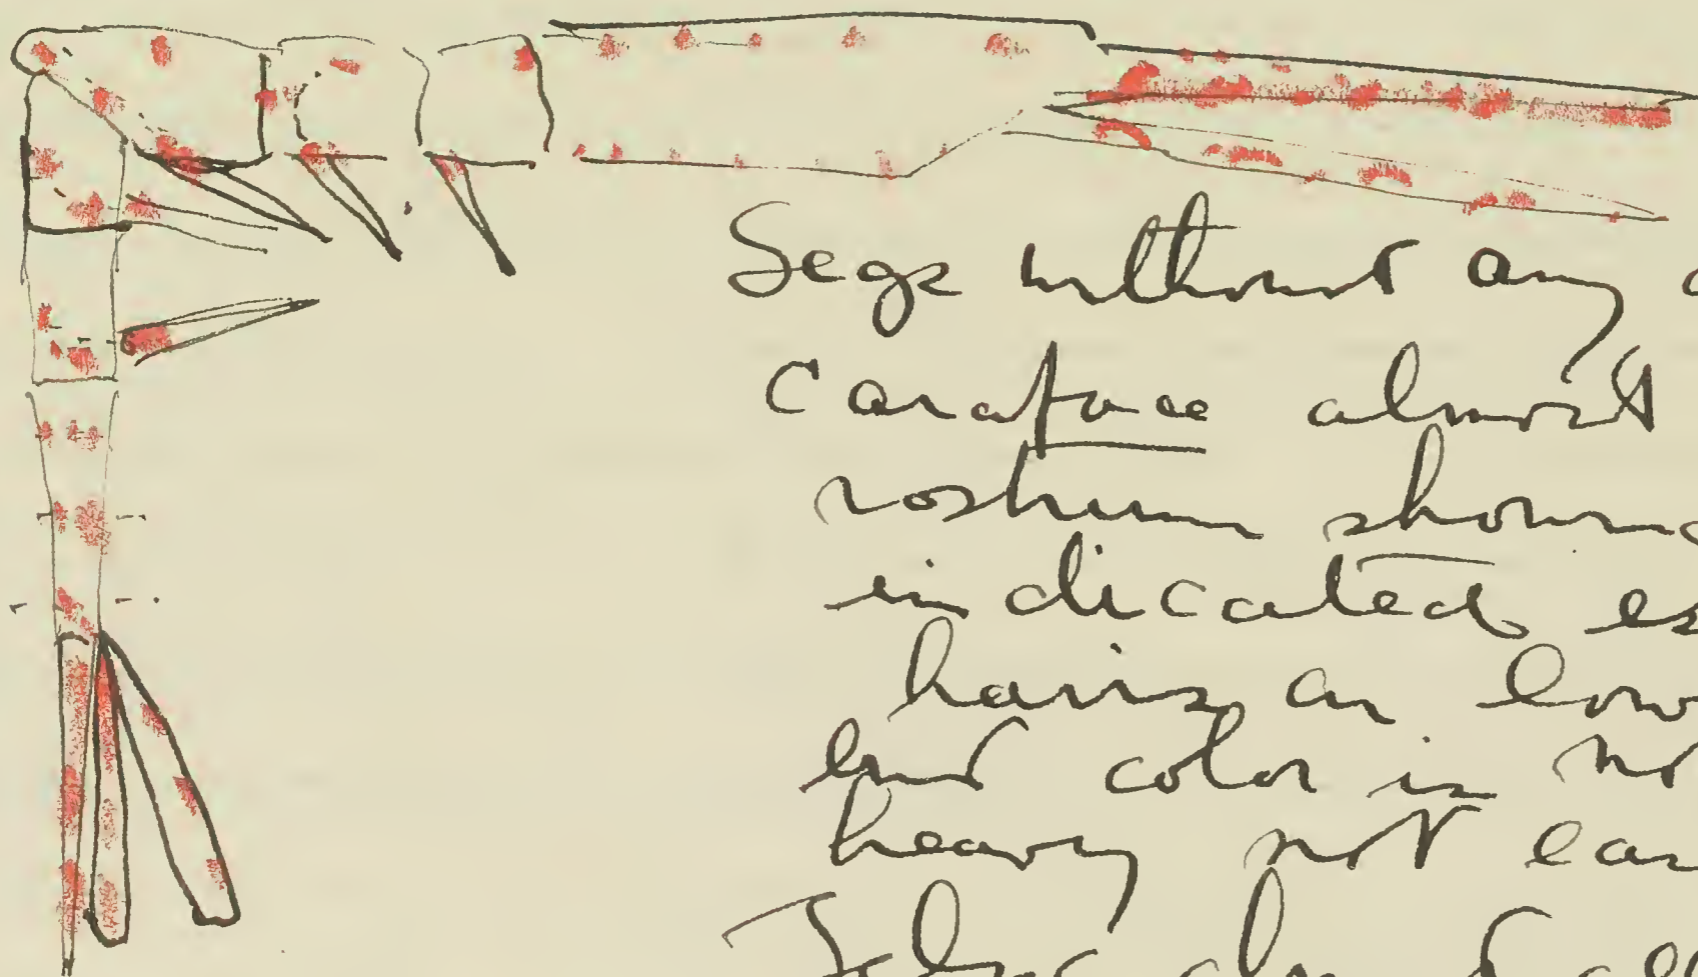 Segs without any
Carapace almost
rostrum
indicated es
hairs on low
end color is no
heavy not eas